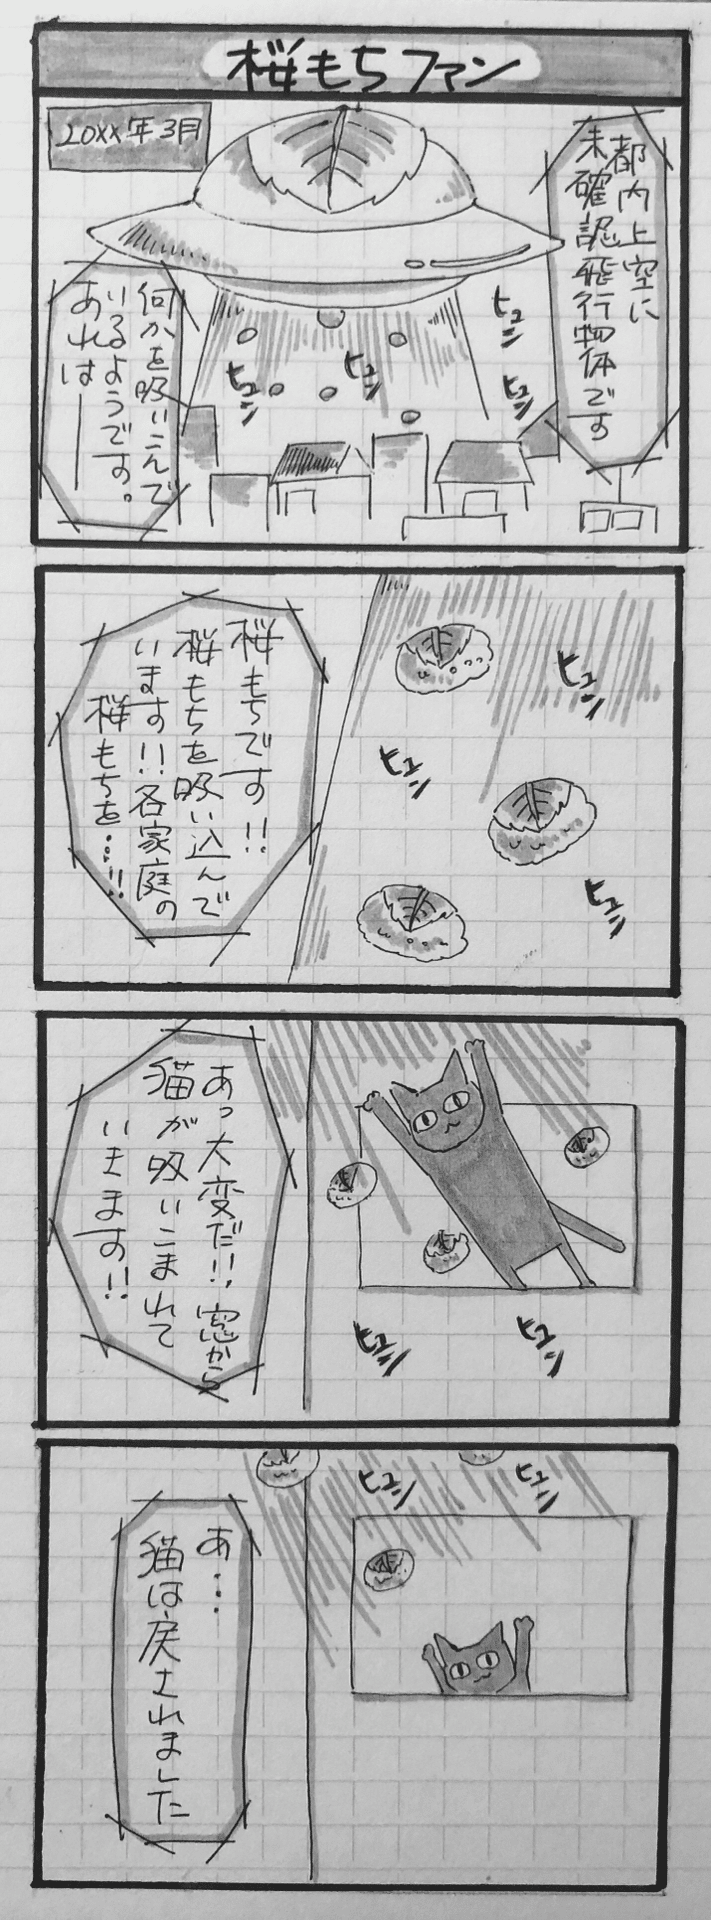 桜もちファン
20XX年3月
都内上空に
未確認飛行物体です
ヒュン
ヒュン
ヒュン
ヒュン
何かを吸いこんで
いるようです。
あれは──
桜もちです!!
桜もちを吸い込んで
います!!各家庭の
桜もちを…!!
ヒュン
ヒュン
ヒュン
あっ大変だ!!窓から
猫が吸いこまれて
いきます!!
ヒュン
ヒュン
ヒュン
ヒュン
あ…
猫は戻されました